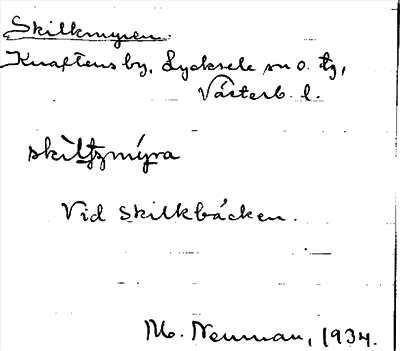 Skilkmyren.
Knaftens by, Lycksele sn o. tg,
Västerb. l.
Vid Skilkbäcken.
M. Neuman, 1934.